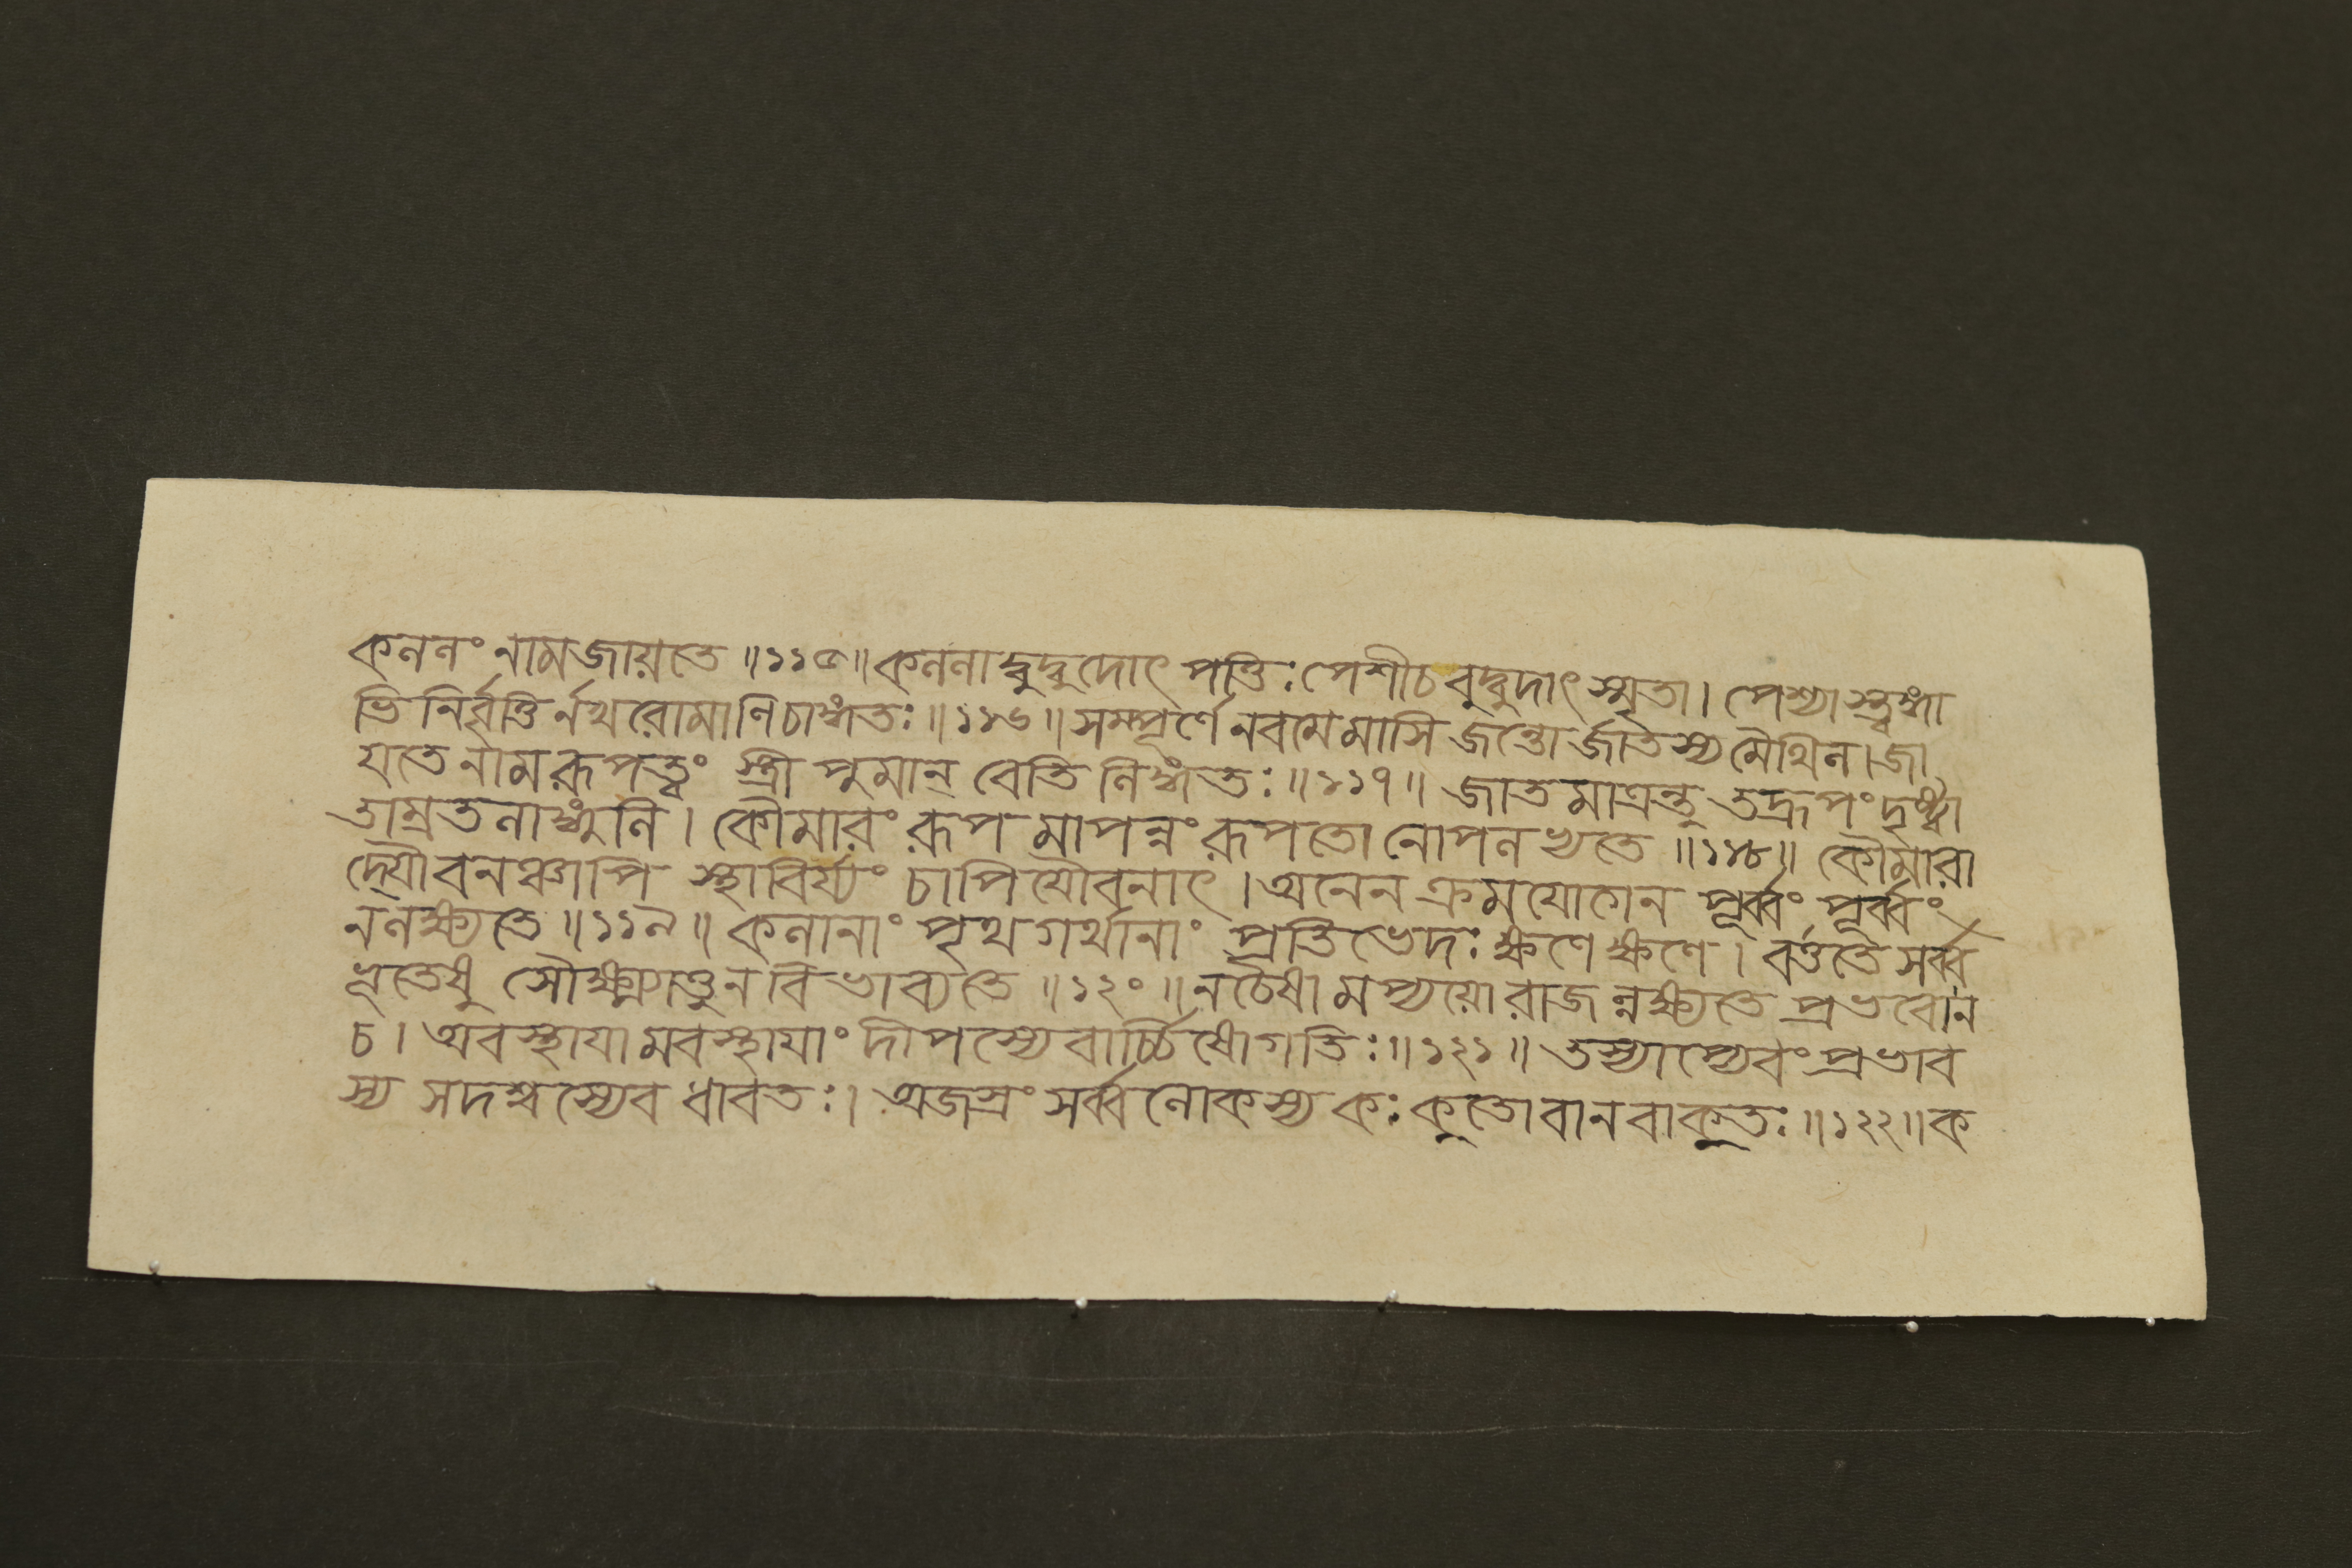 কললং নামজায়তে ॥১১৫॥ কললাদ্বুদ্বুদোৎপত্তিঃ পেশীচবুদ্বুদাৎস্মৃতা। পেশ্যাস্ত্বঙ্গা
ভিনির্বৃত্তির্নখরোমাণিচাঙ্গতঃ ॥১১৬॥ সম্পূর্ণে নবমেমাসি জন্তোর্জাতস্যমৈথিল। জা
যতে নামরূপত্ত্বং স্ত্রী পুমান্ বেতি লিঙ্গতঃ ॥১১৭॥ জাতমাত্রন্তু তদ্রূপং দৃষ্ট্বা
তাম্রতলাঙ্গুলি। কৌমারং রূপমাপন্নং রূপতোনোপলভ্যতে ॥১১৮॥ কৌমারা
দ্যৌবনঞ্চাপি স্থাবির্য্যং চাপিযৌবনাৎ। অনেন ক্রমযোগেন পূর্ব্বং পূর্ব্বং
নলক্ষ্যতে ॥১১৯॥ কলানাং পৃথগর্থানাং প্রতিভেদঃ ক্ষণেক্ষণে। বর্ত্ততে সর্ব্ব
ভূতেষু সৌক্ষ্ম্যাত্তুনবিভাব্যতে ॥১২০॥ নচৈষামপ্যয়োরাজন্নক্ষ্যতে প্রভবোন
চ। অবস্থাযামবস্থাযাং দীপস্যেবার্চ্চিষোগতিঃ ॥১২১॥ তস্যাপ্যেবং প্রভাব
স্য সদশ্বস্যেব ধাবতঃ। অজস্রং সর্ব্বলোকস্য কঃ কুতোবানবাকুতঃ ॥১২২॥ ক